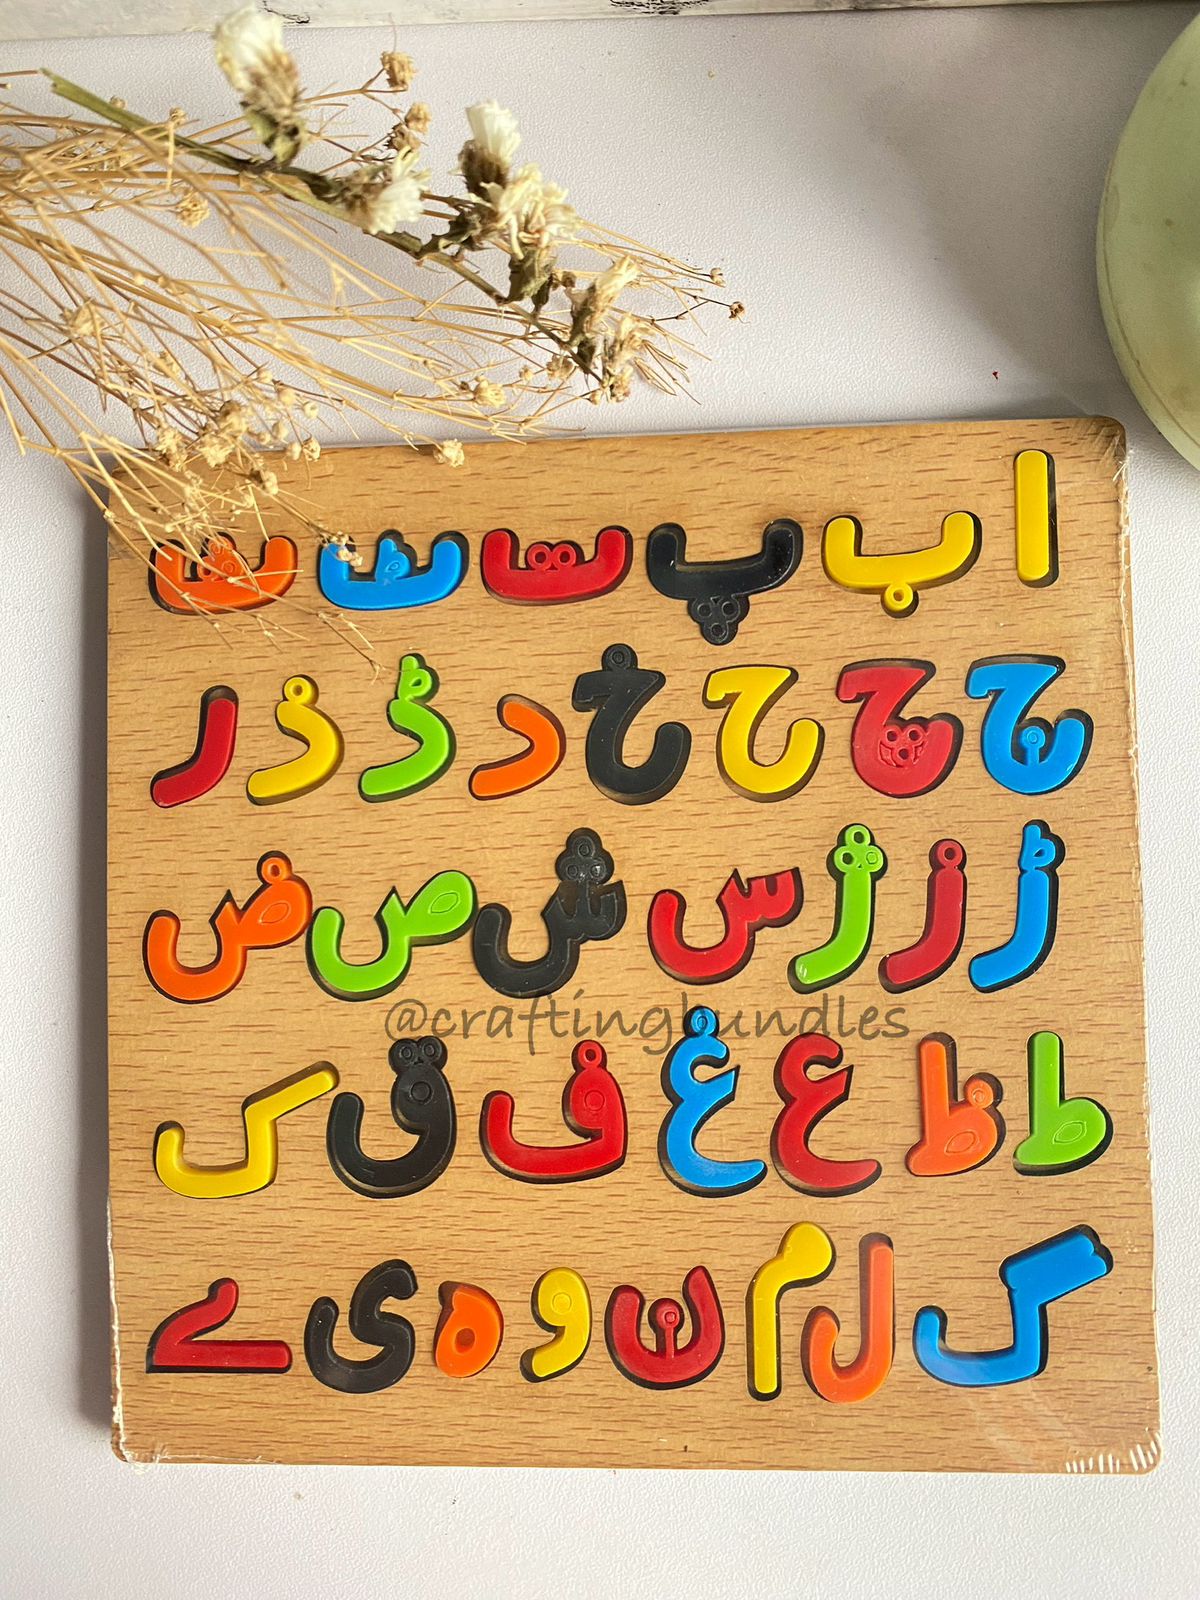 ا ب پ ت ٹ ث
ج چ ح خ د ڈ ذ ر
ڑ ز ژ س ش ص ض
ط ظ ع غ ف ق ک
گ ل م ن و ہ ی ے
@craftingbundles